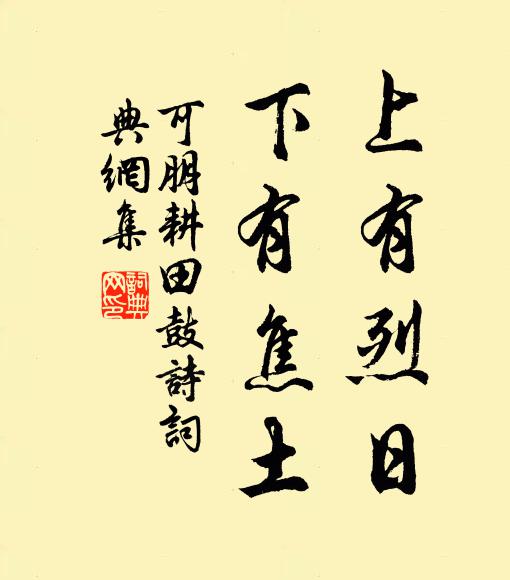 上有烈日
下有焦土
可朋耕田鼓詩詞
典網集
詞典
网印